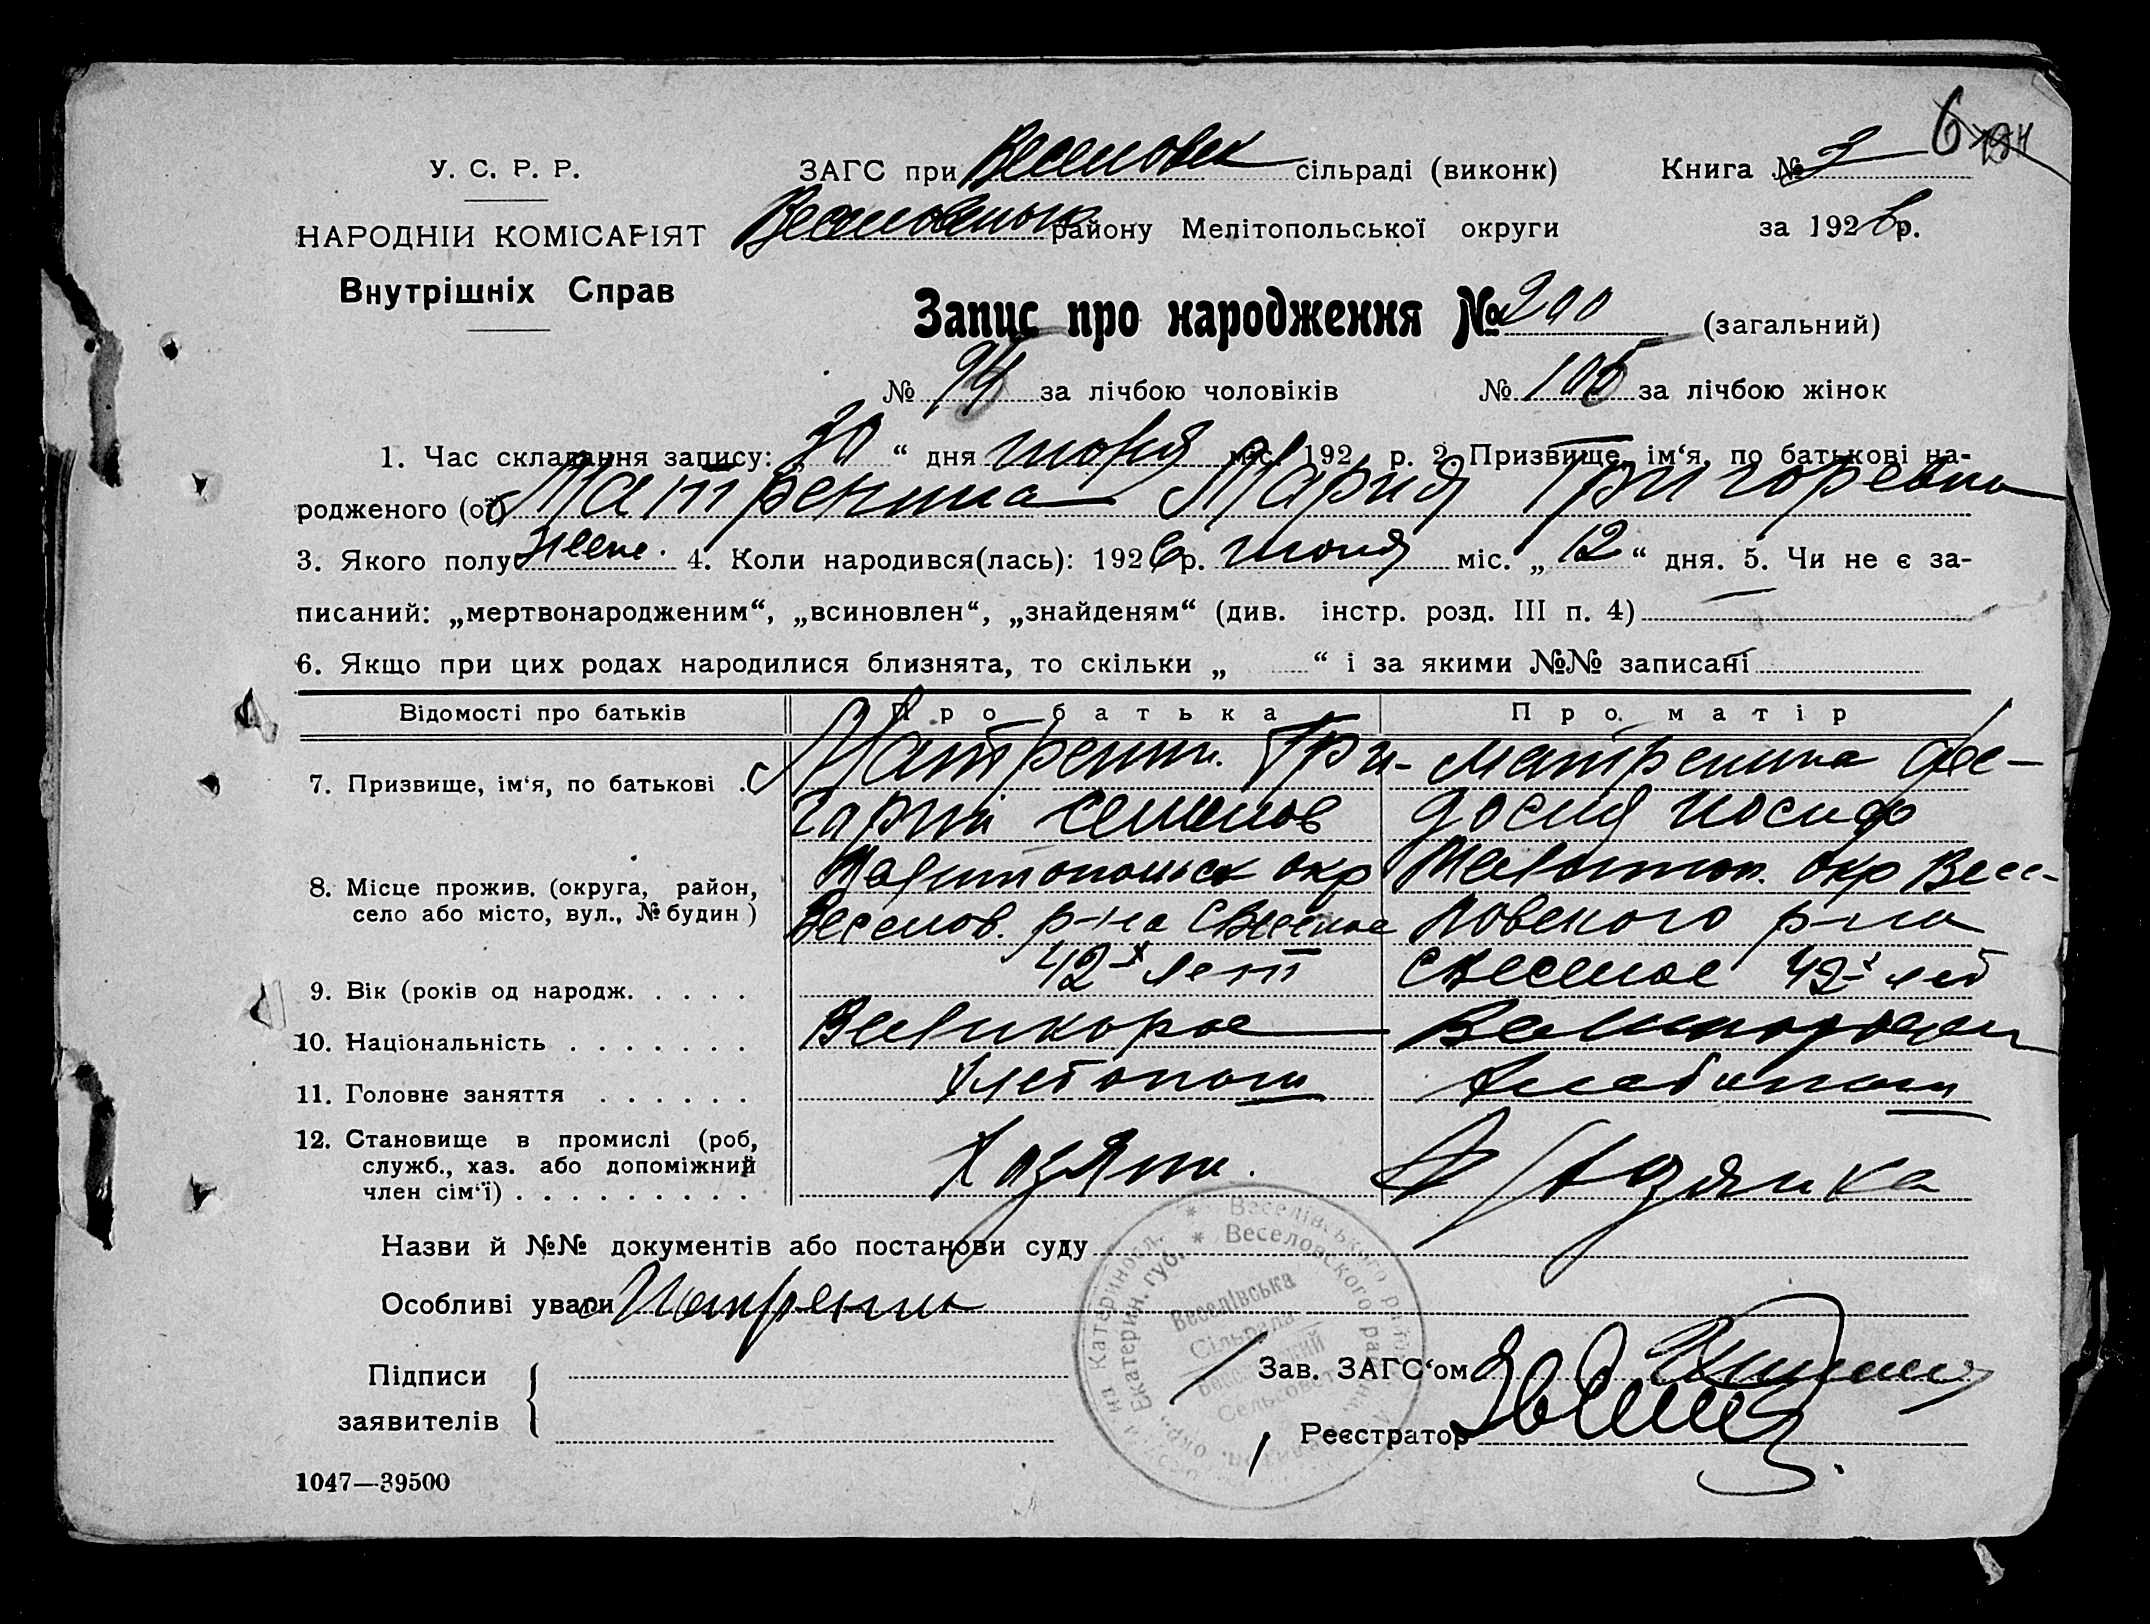 6
У. С. Р. Р.
ЗАГС при Веселовск сільраді (виконк)
Книга № 2
НАРОДНІЙ КОМІСАРІЯТ
Веселовськ району Мелітопольської округи
за 1926 р.
Внутрішніх Справ
Запис про народження № 200 (загальний)
№ 94 за лічбою чоловіків № 105 за лічбою жінок
1. Час складання запису: 30 “ дня июня міс. 192 р. 2. Призвище, ім‘я, по батькові на-
родженого (ої) Матренина Мария Григоревна
3. Якого полу женс. 4. Коли народився(лась): 1926 р. июня міс. „ 12 “ дня. 5. Чи не є за-
писаний: „мертвонародженим“, „всиновлен“, „знайденям“ (див. інстр. розд. III п. 4)
6. Якщо при цих родах народилися близнята, то скільки „ “ і за якими №№ записані
Відомості про батьків Про батька Про матір
7. Призвище, ім‘я, по батькові . Матренин. Гри- Матренина Фе-
горий Семенов досия Иосиф
8. Місце прожив. (округа, район, Мелитопольск окр Мелитоп. окр Весе-
село або місто, вул., № будин) Веселов. р-на с Веселое ловского р-на
9. Вік (років од народж. . . . . 42-х лет с Веселое 42-х лет
10. Національність . . . . . . . Великорос Великоросиян
11. Головне заняття . . . . . . Хлебопаш Хлебопаш
12. Становище в промислі (роб,
служб., хаз. або допоміжний Хозяин. Хозяика
член сім‘ї) . . . . . . . . .
Назви й №№ документів або постанови суду
Особливі уваги
Веселівська
Сільрада
Сельсовет
Підписи
заявителів
Зав. ЗАГС‘ом
Реєстратор
1047—39500